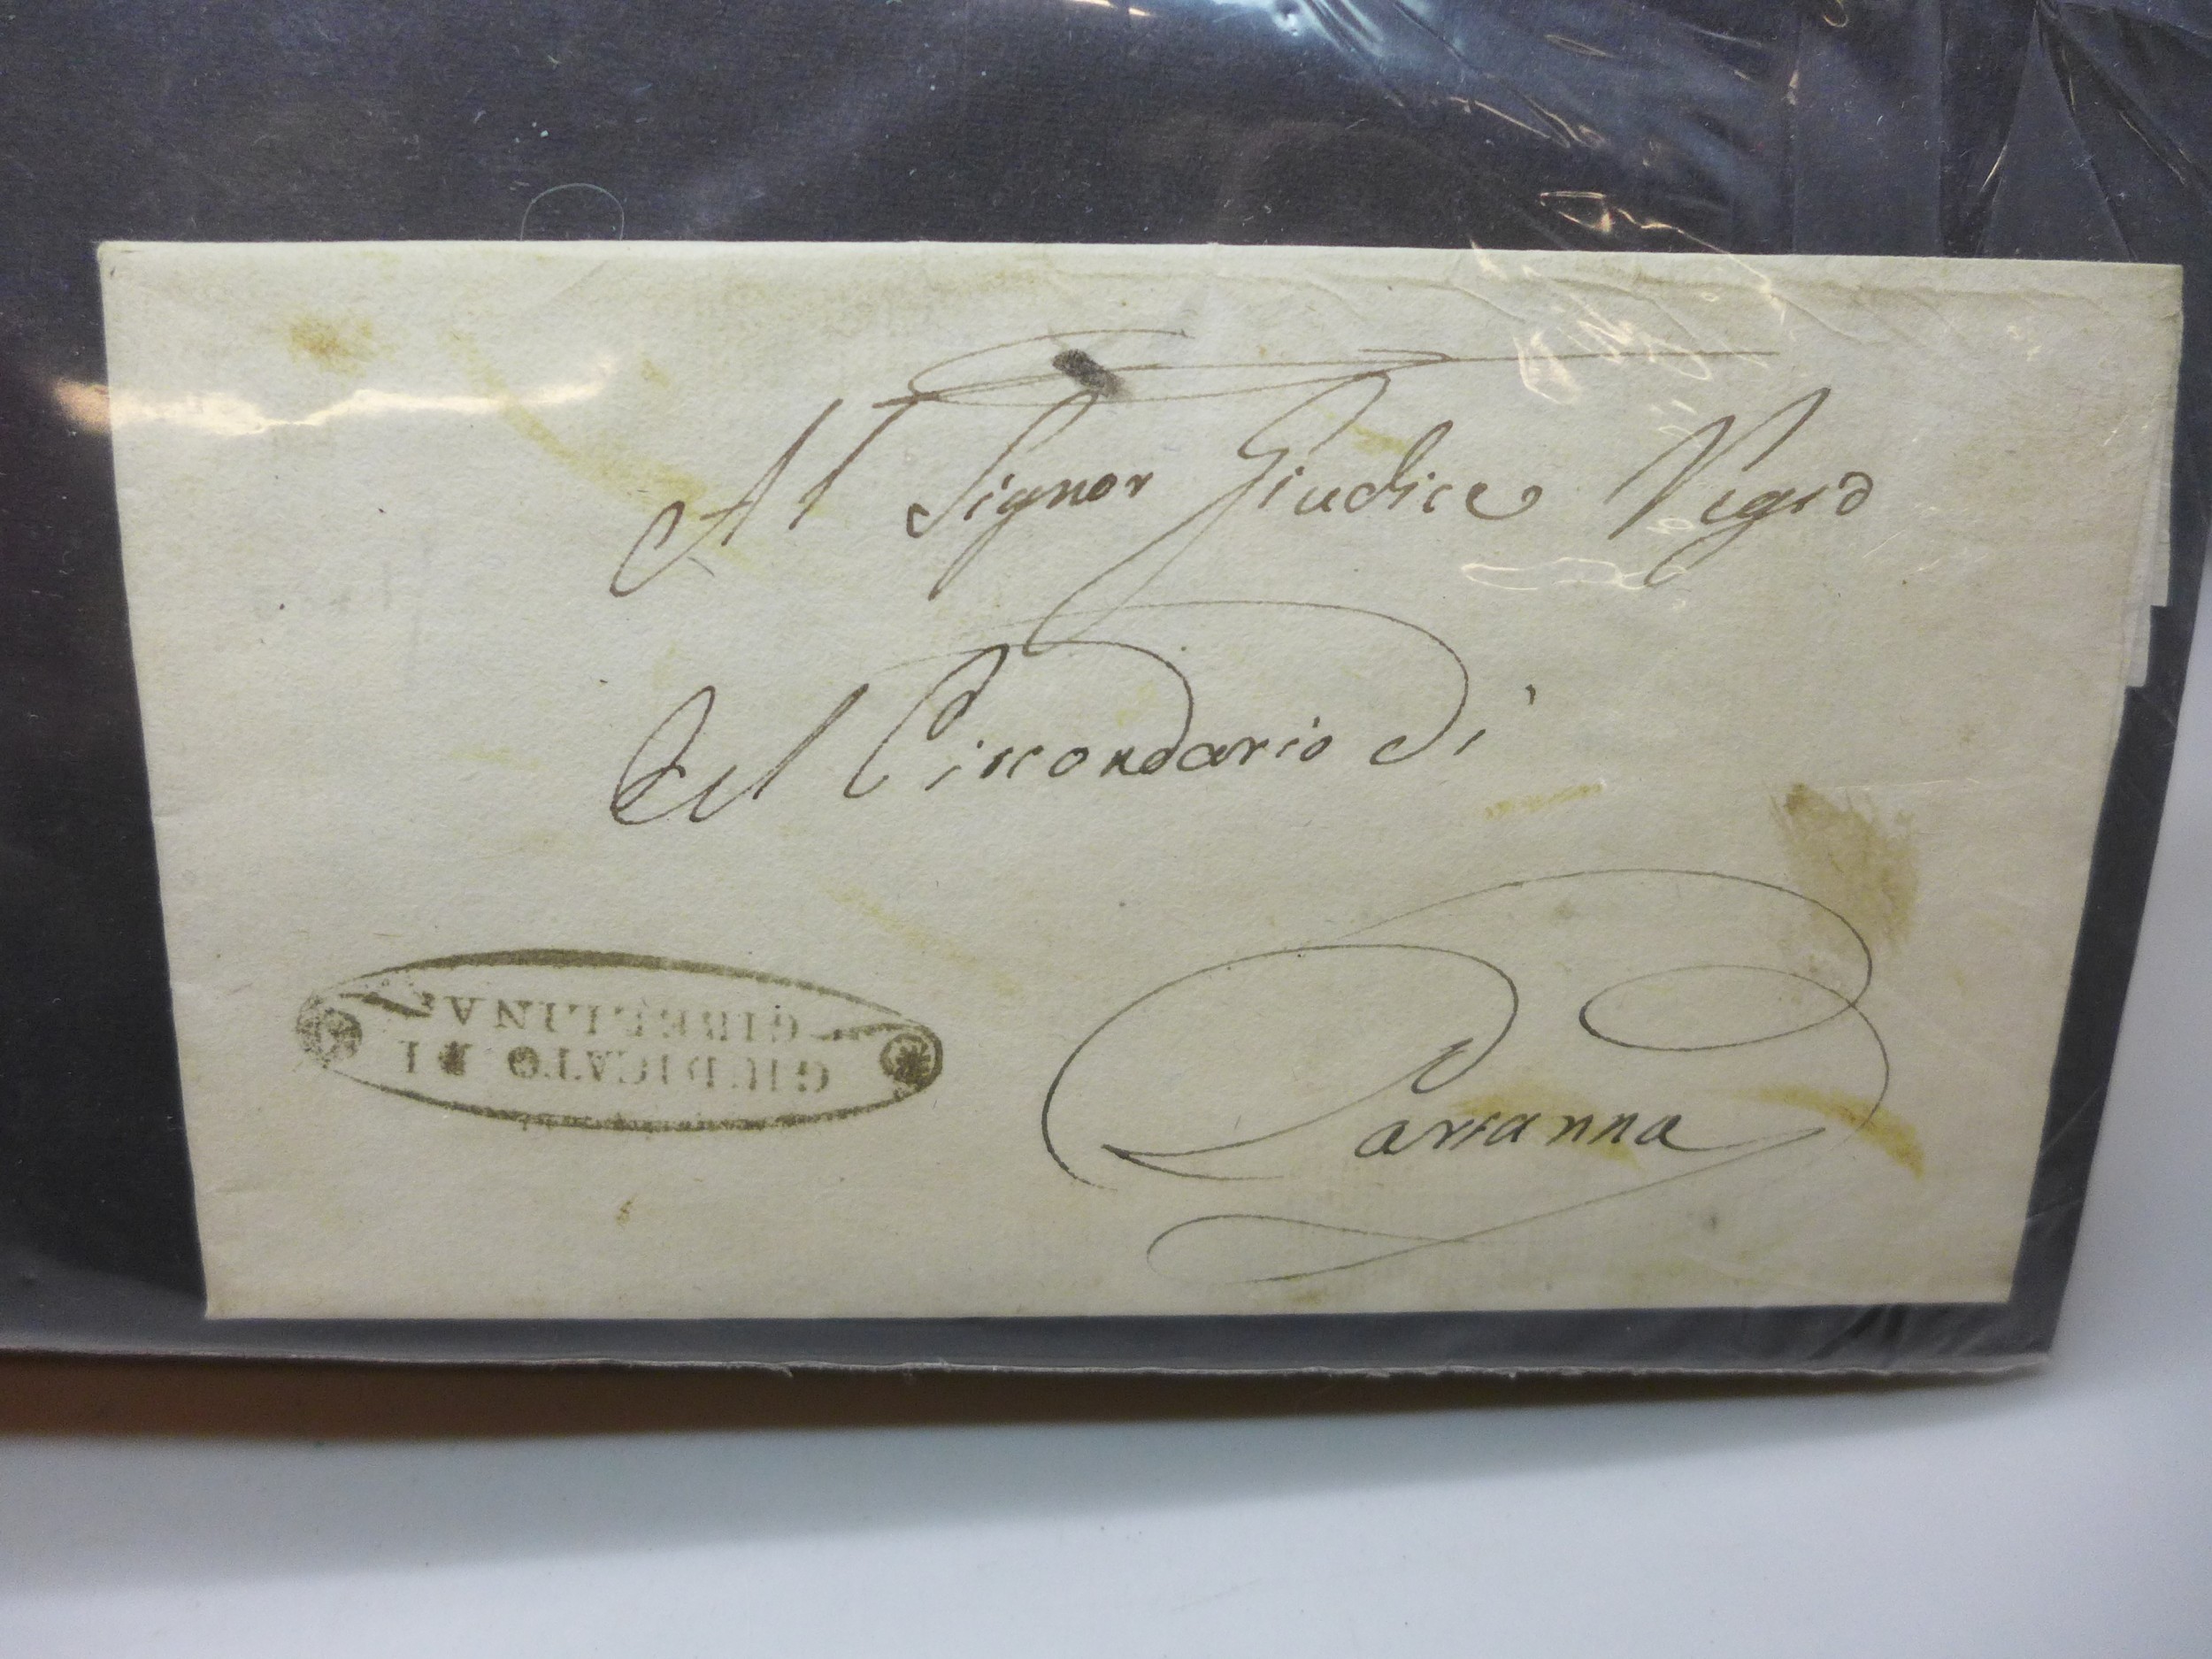 Al Signor Giudice Regio
del Circondario di
Partanna
GIUDICATO DI
GIBELLINA